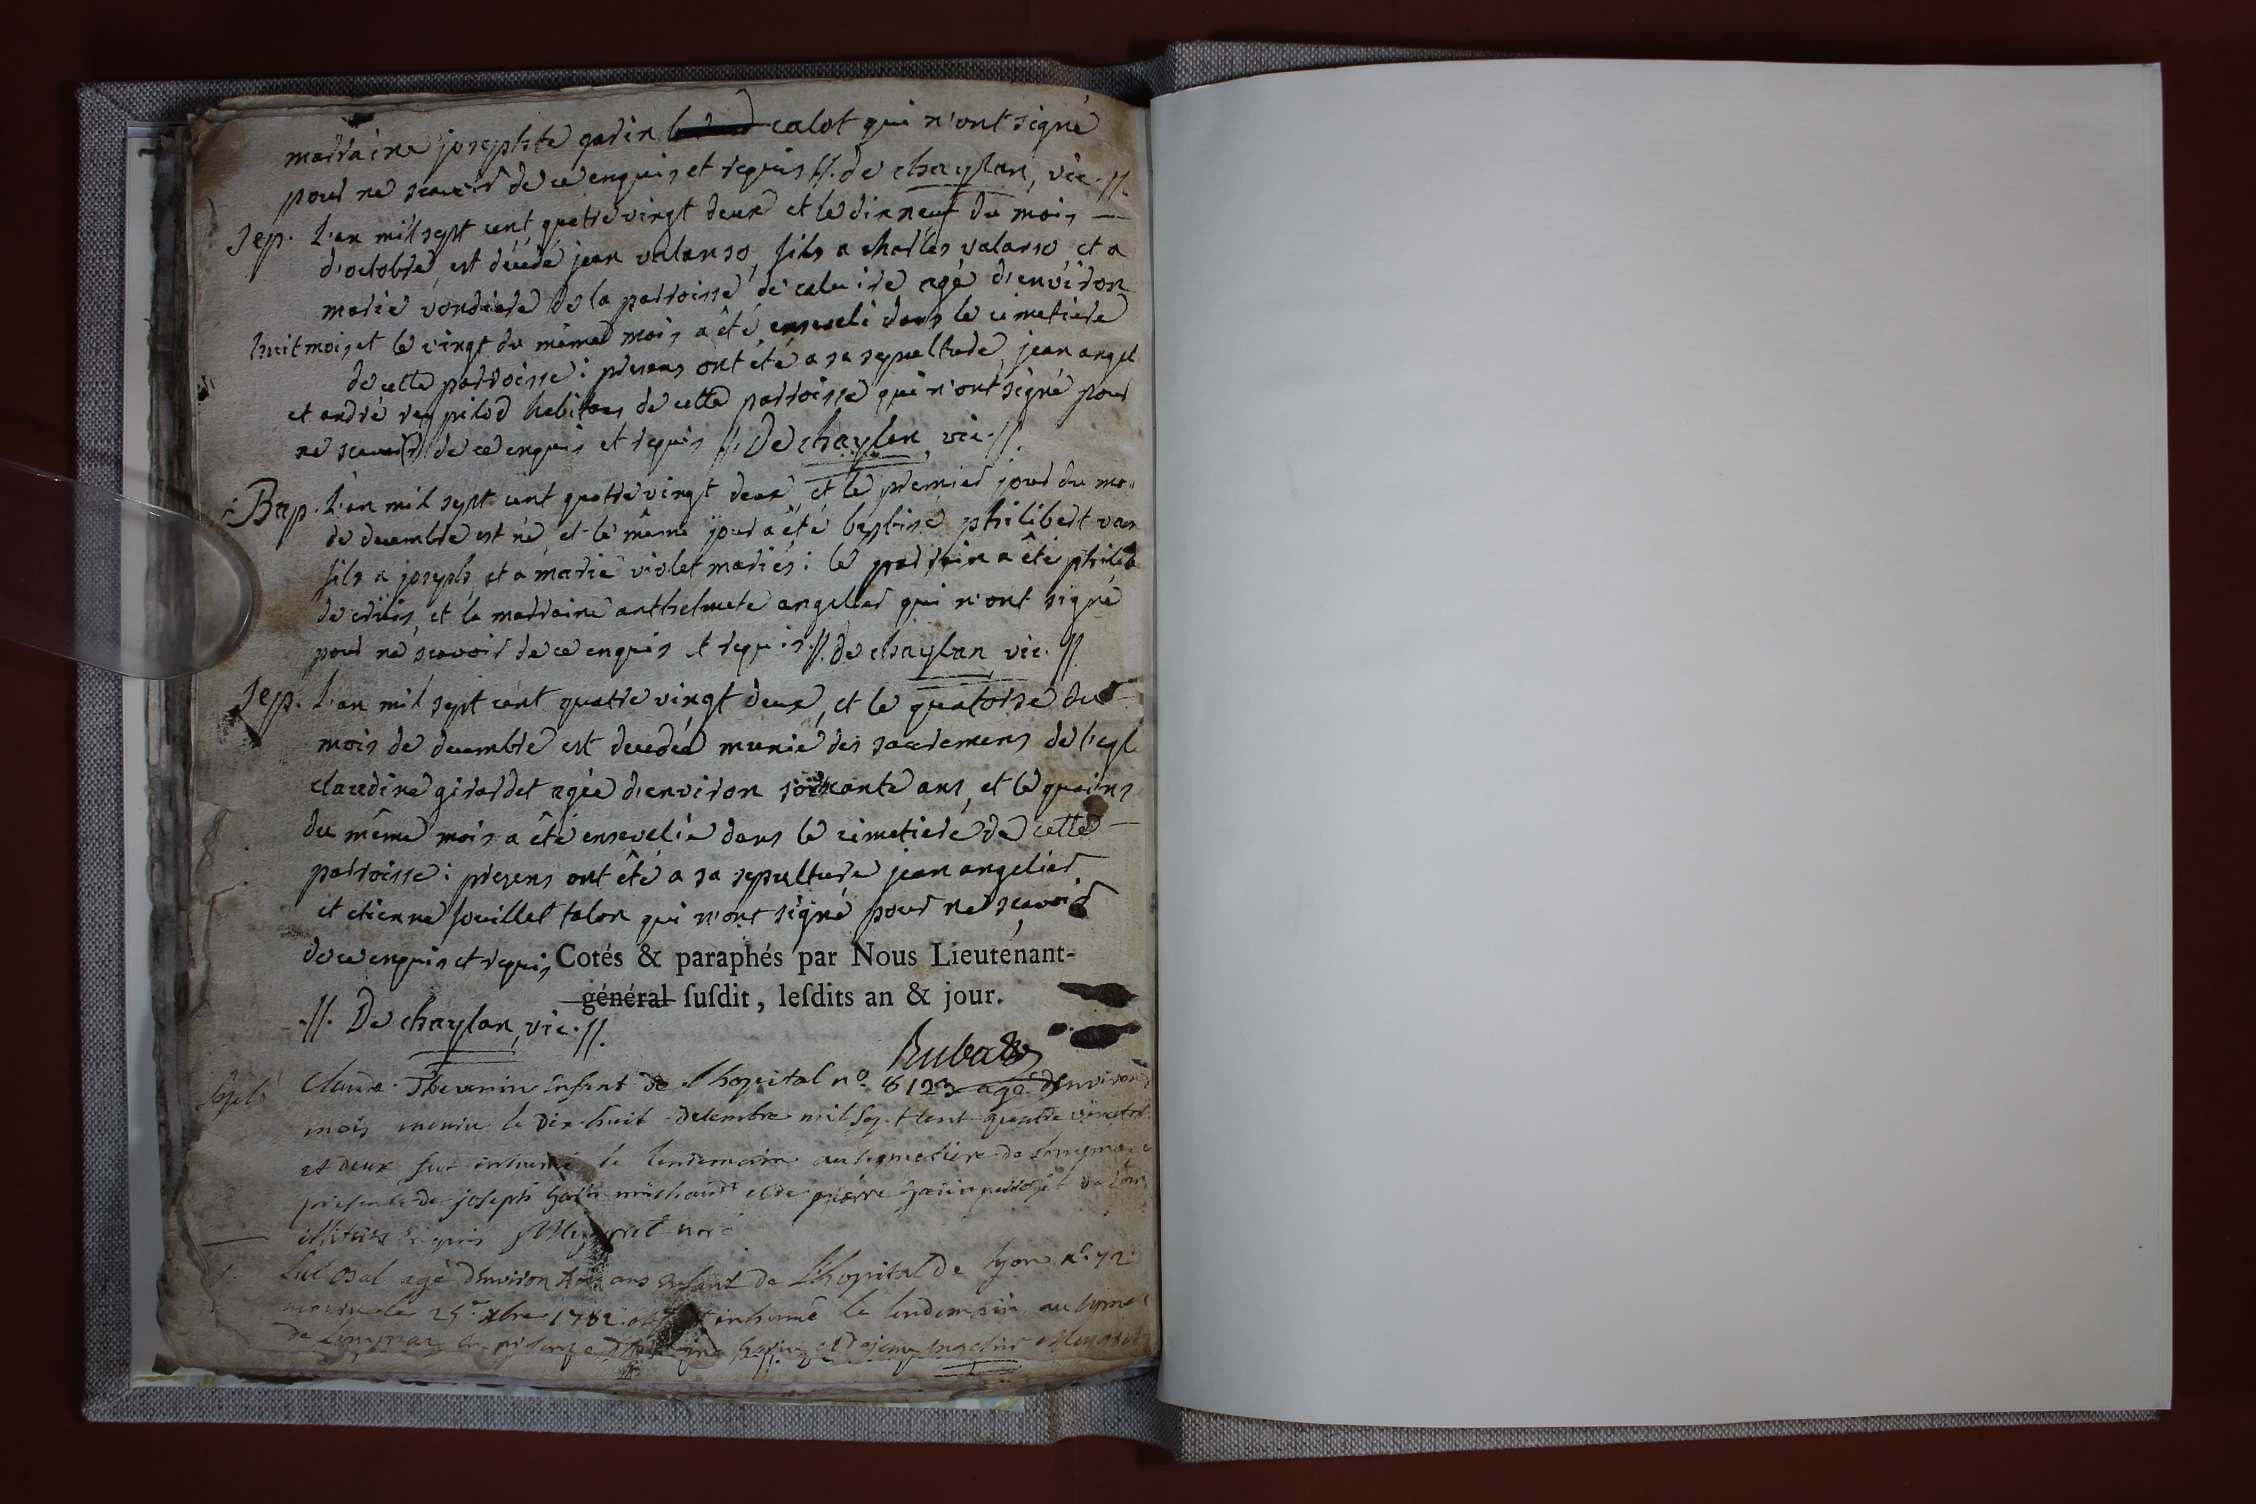 marraine josephte garin calot qui n'ont signé
pour ne scavoir de ce enquis et requis //. de chaylan, vic. //.
Sep. L'an mil sept cent quatre vingt deux et le dix neuf du mois
d'octobre est décédé jean valanso, fils a charles valanso et a
marie vondiere de la parroisse de caluire agé d'environ
huit mois et le vingt du même mois a été enseveli dans le cimetiere
de cette parroisse : presens ont été a sa sepulture, jean angel
et andré habitans de cette parroisse qui n'ont signé pour
ne scavoir de ce enquis et requis //. De chaylan, vic. //.
Bap. L'an mil sept cent quatre vingt deux, et le premier jour du mo
de decembre est né, et le même jour a été baptisé philibert van
fils a joseph, et a marie violet mariés : le parrain a été philib
de crüis, et la marraine anthelmete angelier qui n'ont signé
pour ne scavoir de ce enquis et requis //. de chaylan, vic. //
Sep. L'an mil sept cent quatre vingt deux, et le quatorse du
mois de decembre est decedée munie des sacremens de l'egl
claudine girardet agée d'environ soixante ans, et le quins
du même mois a été ensevelie dans le cimetiere de cette
parroisse : presens ont été a sa sepulture jean angelier
et etienne fouillet talon qui n'ont signé pour ne scavoir
de ce enquis et requis Cotés & paraphés par Nous Lieutenant-
général ſuſdit, leſdits an & jour.
.//. De chaylan, vic. //.
Claude Thevenin enfant de l'hopital n.º 8123 agé d'environ
mois mouru le dix huit decembre mil sept cent quatre vingt
et deux fut inhumé le lendemain au cymetiere de
presence de joseph garin michaud et de pierre garin
illiteres requis
agé d'environ ans enfant de l'hopital de lyon n.º 72
mouru le 25.e Xbre 1782 et fut inhumé le lendemain au cyme
de en presence